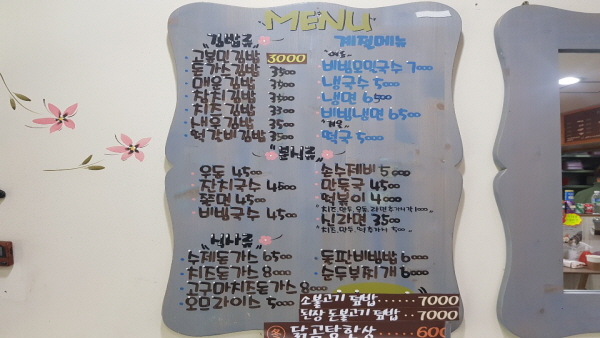 MENU
김밥류
고봉민김밥 3000
돈가스김밥 3500
매운김밥 3500
참치김밥 3500
치즈김밥 3500
새우김밥 3500
떡갈비김밥 3500
계절메뉴
비빔모밀국수 7000
냉국수 5000
냉면 6500
비빔냉면 6500
떡국 5000
분식류
우동 4500
잔치국수 4500
쫄면 4500
비빔국수 4500
손수제비 5000
만둣국 4500
떡볶이 4000
신라면 3500
식사류
수제돈가스 6500
치즈돈가스 8000
고구마치즈돈가스 8000
오므라이스 5000
돌판비빔밥 6000
순두부찌개 6000
소불고기 덮밥 ...... 7000
된장 돈불고기 덮밥 .. 7000
冬 닭곰탕한상 ...... 600